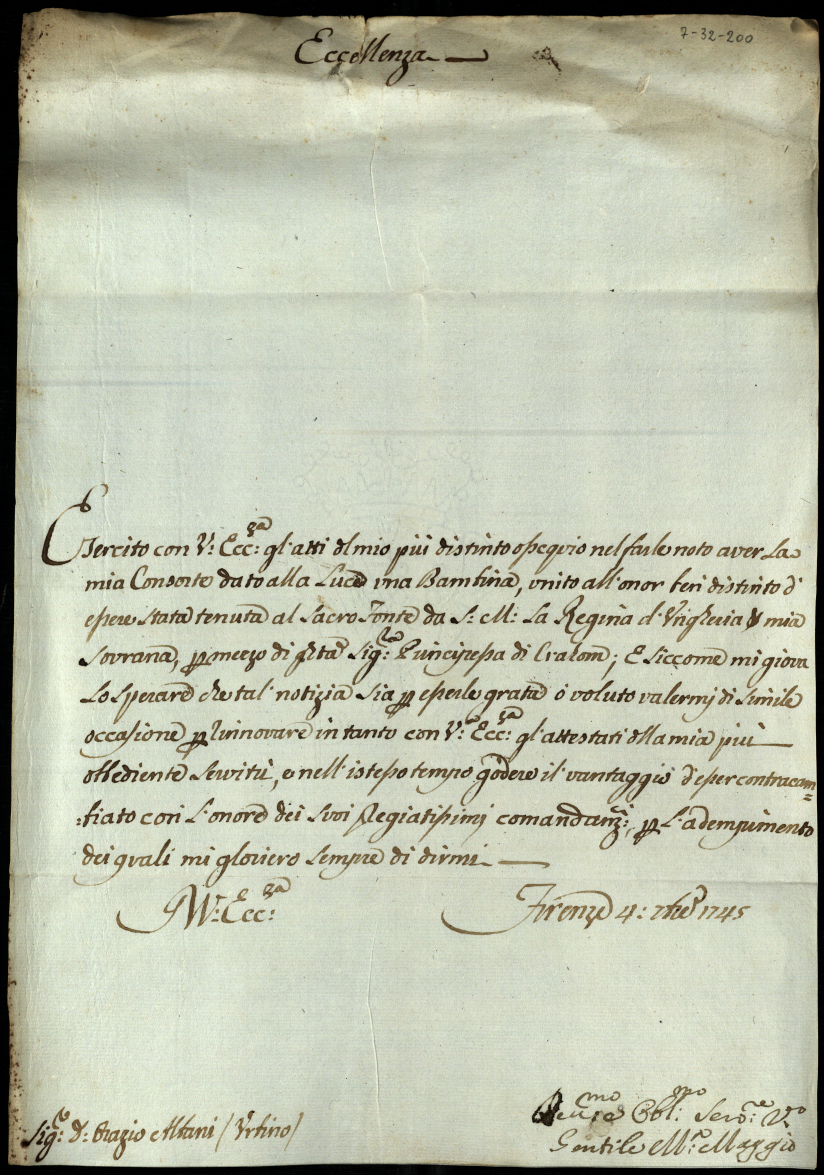 7-32-200
Eccellenza
Esercito con V: Ecc:za gl'atti del mio più distinto ossequio nel farle noto aver La
mia Consorte dato alla Luce una Bambina, unito all'onor ben distinto d'
essere stata tenuta al Sacro Fonte da S: M: La Regina d'Vngheria mia
Sovrana, p mezzo di Sig:ra Principessa di Craon; E siccome mi giova
Lo sperare che tal' notizia sia p esserle grata ò voluto valermj di simile
occasione p rinnovare in tanto con V:a Ecc:za gl'attestati della mia più
obbediente Servitù, e nell'istesso tempo godere il vantaggio d'esser contracam=
=biato con L'onore dei Suoi Pregiatissimj comandam:ti, p L'adempimento
dei quali mi glorierò sempre di dirmi
V: Ecc:za
Firenze 4: 7bre 1745
Sig:re D: Orazio Albani / Vrbino /
Dev:mo Obbl:mo Serv:re V:o
Gentile M:a Maggio